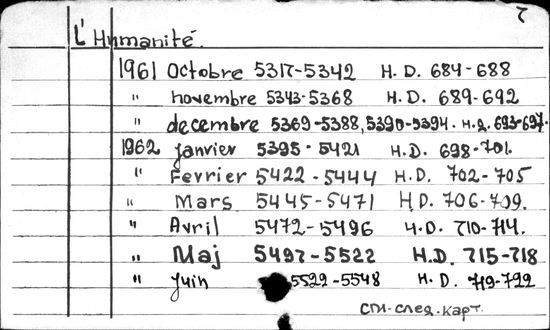 7
L'Humanité.
1961 Octobre 5317-5342 H.D. 684-688
" novembre 5343-5368 H.D. 689-692
" decembre 5369-5388, 5390-5394. H.D. 693-697.
1962 janvier 5395-5421 H.D. 698-701.
" Fevrier 5422-5444 H.D. 702-705
" Mars 5445-5471 H.D. 706-709.
" Avril 5472-5496 H.D. 710-714.
" Maj 5497-5522 H.D. 715-718
" juin 5522-5548 H.D. 719-722
см. след. карт.